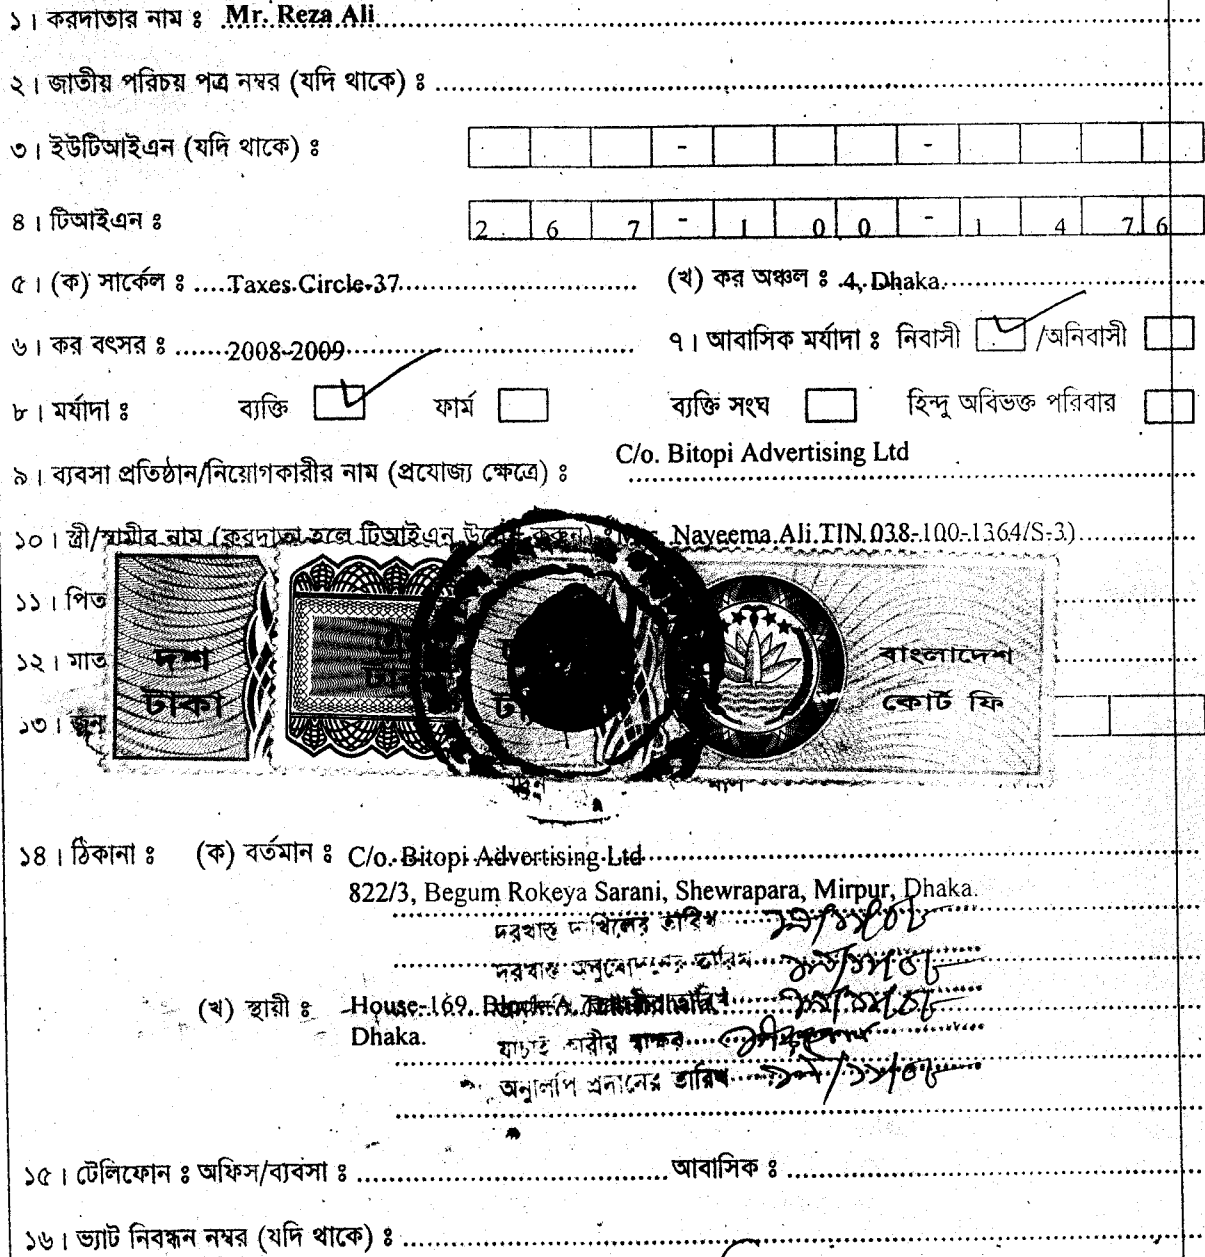 ১। করদাতার নাম ঃ Mr. Reza Ali
২। জাতীয় পরিচয় পত্র নম্বর (যদি থাকে) ঃ
৩। ইউটিআইএন (যদি থাকে) ঃ - -
৪। টিআইএন ঃ 2 6 7 - 1 0 0 - 1 4 7 6
৫। (ক) সার্কেল ঃ Taxes Circle-37 (খ) কর অঞ্চল ঃ 4, Dhaka.
৬। কর বৎসর ঃ 2008-2009 ৭। আবাসিক মর্যাদা ঃ নিবাসী /অনিবাসী
৮। মর্যাদা ঃ ব্যক্তি ফার্ম ব্যক্তি সংঘ হিন্দু অবিভক্ত পরিবার
C/o. Bitopi Advertising Ltd
৯। ব্যবসা প্রতিষ্ঠান/নিয়োগকারীর নাম (প্রযোজ্য ক্ষেত্রে) ঃ
১০। স্ত্রী/স্বামীর নাম (করদাতা হলে টিআইএন উল্লেখ করুন) ঃ Nayeema Ali TIN 038-100-1364/S-3)
১১। পিত
১২। মাত
১৩।
দশ টাকা
বাংলাদেশ
কোর্ট ফি
১৪। ঠিকানা ঃ (ক) বর্তমান ঃ C/o. Bitopi Advertising Ltd
822/3, Begum Rokeya Sarani, Shewrapara, Mirpur, Dhaka.
দরখাস্ত দাখিলের তারিখ
দরখাস্ত অনুমোদনের তারিখ
(খ) স্থায়ী ঃ House-169, Block-A,
Dhaka.
যাচাই কারীর স্বাক্ষর
অনুলিপি প্রদানের তারিখ
১৫। টেলিফোন ঃ অফিস/ব্যবসা ঃ আবাসিক ঃ
১৬। ভ্যাট নিবন্ধন নম্বর (যদি থাকে) ঃ